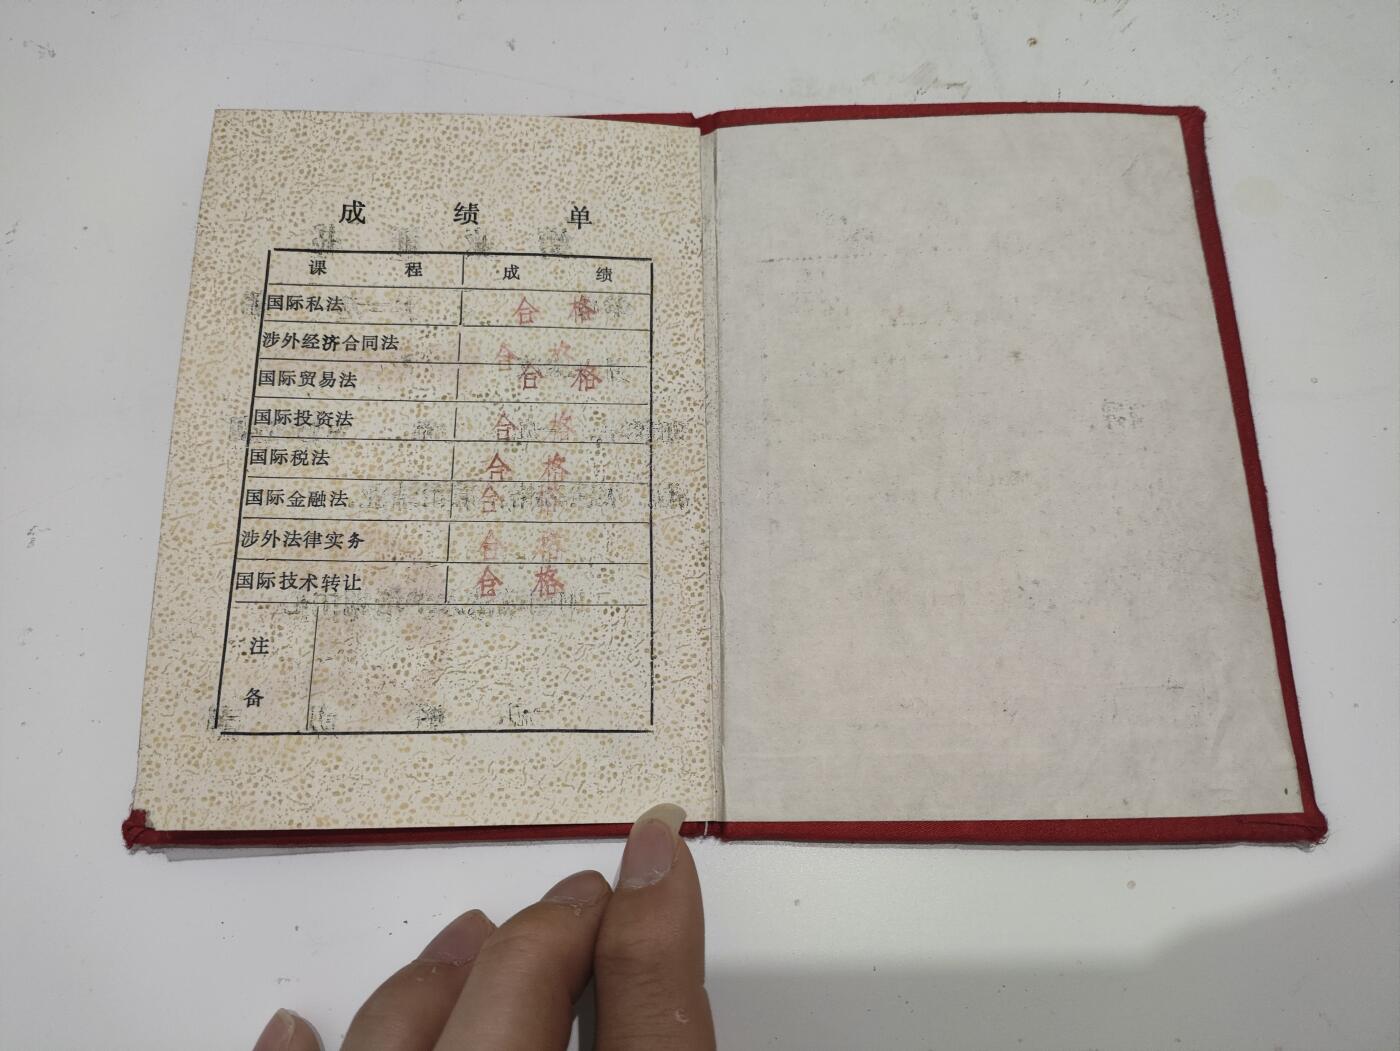 成绩单
课程 成绩
国际私法 合格
涉外经济合同法 合格
国际贸易法 合格
国际投资法 合格
国际税法 合格
国际金融法 合格
涉外法律实务 合格
国际技术转让 合格
注
备